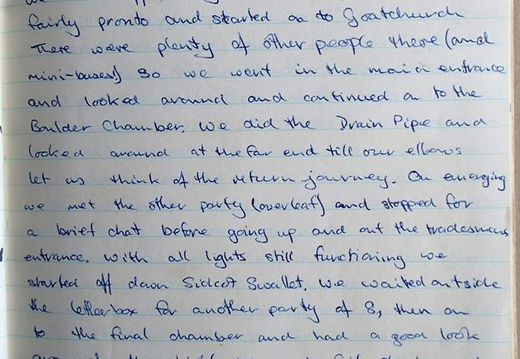 fairly pronto and started on to Goatchurch
There were plenty of other people there (and
mini-buses!) So we went in the main entrance
and looked around and continued on to the
Boulder Chamber. We did the Drain Pipe and
looked around at the far end till our elbows
let us think of the return journey. On emerging
we met the other party (overleaf) and stopped for
a brief chat before going up and out the tradesmans
entrance. With all lights still functioning we
started off down Sidcot Swallet. We waited outside
the letterbox for another party of 8, then on
to the final chamber and had a good look